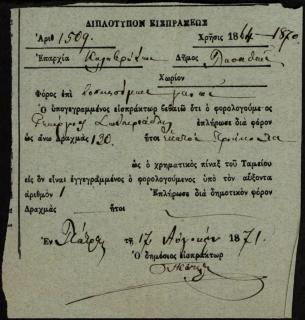 ΔΙΠΛΟΤΥΠΟΝ ΕΙΣΠΡΑΞΕΩΣ
Ἀριθ 1509. Χρῆσις 1864-1870
Ἐπαρχία Καλαβρύτων Δῆμος
Χωρίον
Φόρος ἐπὶ
Ὁ ὑπογεγραμμένος εἰσπράκτωρ βεβαιοῖ ὅτι ὁ φορολογούμενος
Γεώργιος ἐπλήρωσε διὰ φόρον
ὡς ἄνω Δραχμὰς 130. ἤτοι Ἑκατὸν Τριάκοντα
ὡς ὁ χρηματικὸς πίναξ τοῦ Ταμείου
εἰς ὃν εἶναι ἐγγεγραμμένος ὁ φορολογούμενος ὑπὸ τὸν αὔξοντα
ἀριθμὸν 1 Ἐπλήρωσε διὰ δημοτικὸν φόρον
Δραχμὰς ἤτοι
Ἐν τῇ 17 1871.
Ὁ δημόσιος εἰσπράκτωρ